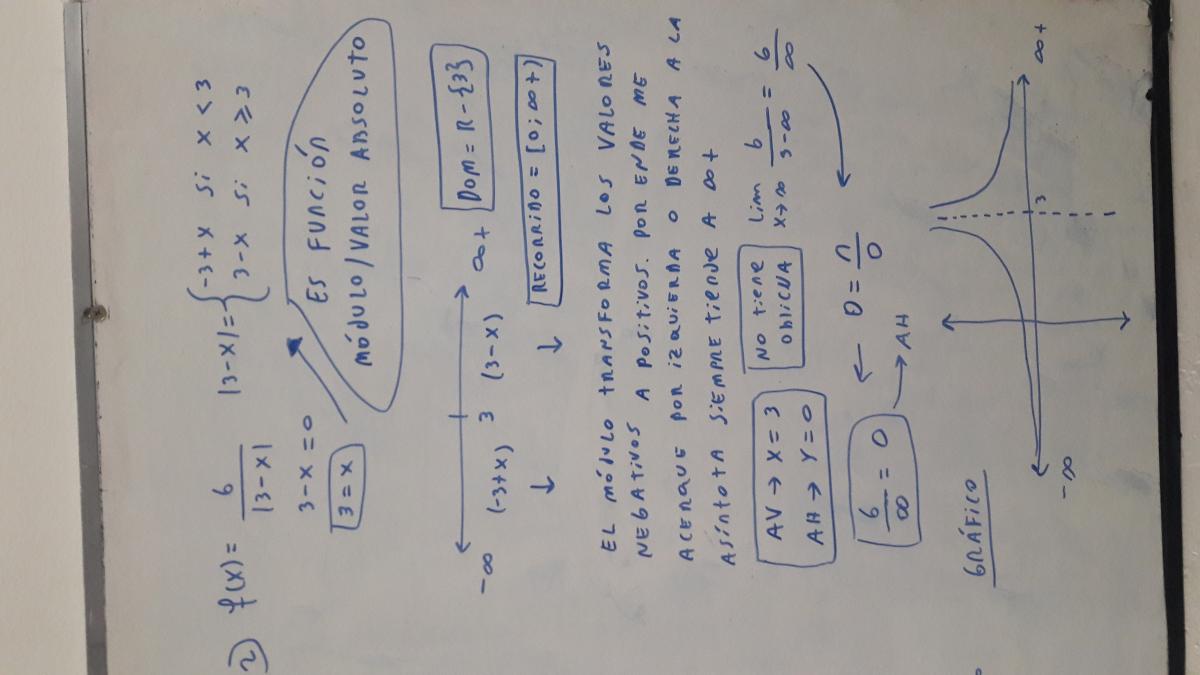 2) f(x) = 6/|3-x| |3-x| = { -3+x si x < 3
3-x si x ≥ 3
3-x = 0
3 = x
ES FUNCIÓN
MÓDULO/VALOR ABSOLUTO
-∞ 3 ∞+
(-3+x) (3-x)
DOM = R - {3}
RECORRIDO = [0; ∞+)
EL MÓDULO TRANSFORMA LOS VALORES
NEGATIVOS A POSITIVOS. POR ENDE ME
ACERQUE POR IZQUIERDA O DERECHA A LA
ASÍNTOTA SIEMPRE TIENDE A ∞+
AV → X = 3
AH → Y = 0
NO tiene
OBLICUA
Lim x→∞ 6/3-∞ = 6/∞
6/∞ = 0 ← 0 = n/0
→ AH
GRÁFICO
-∞ 3 ∞+